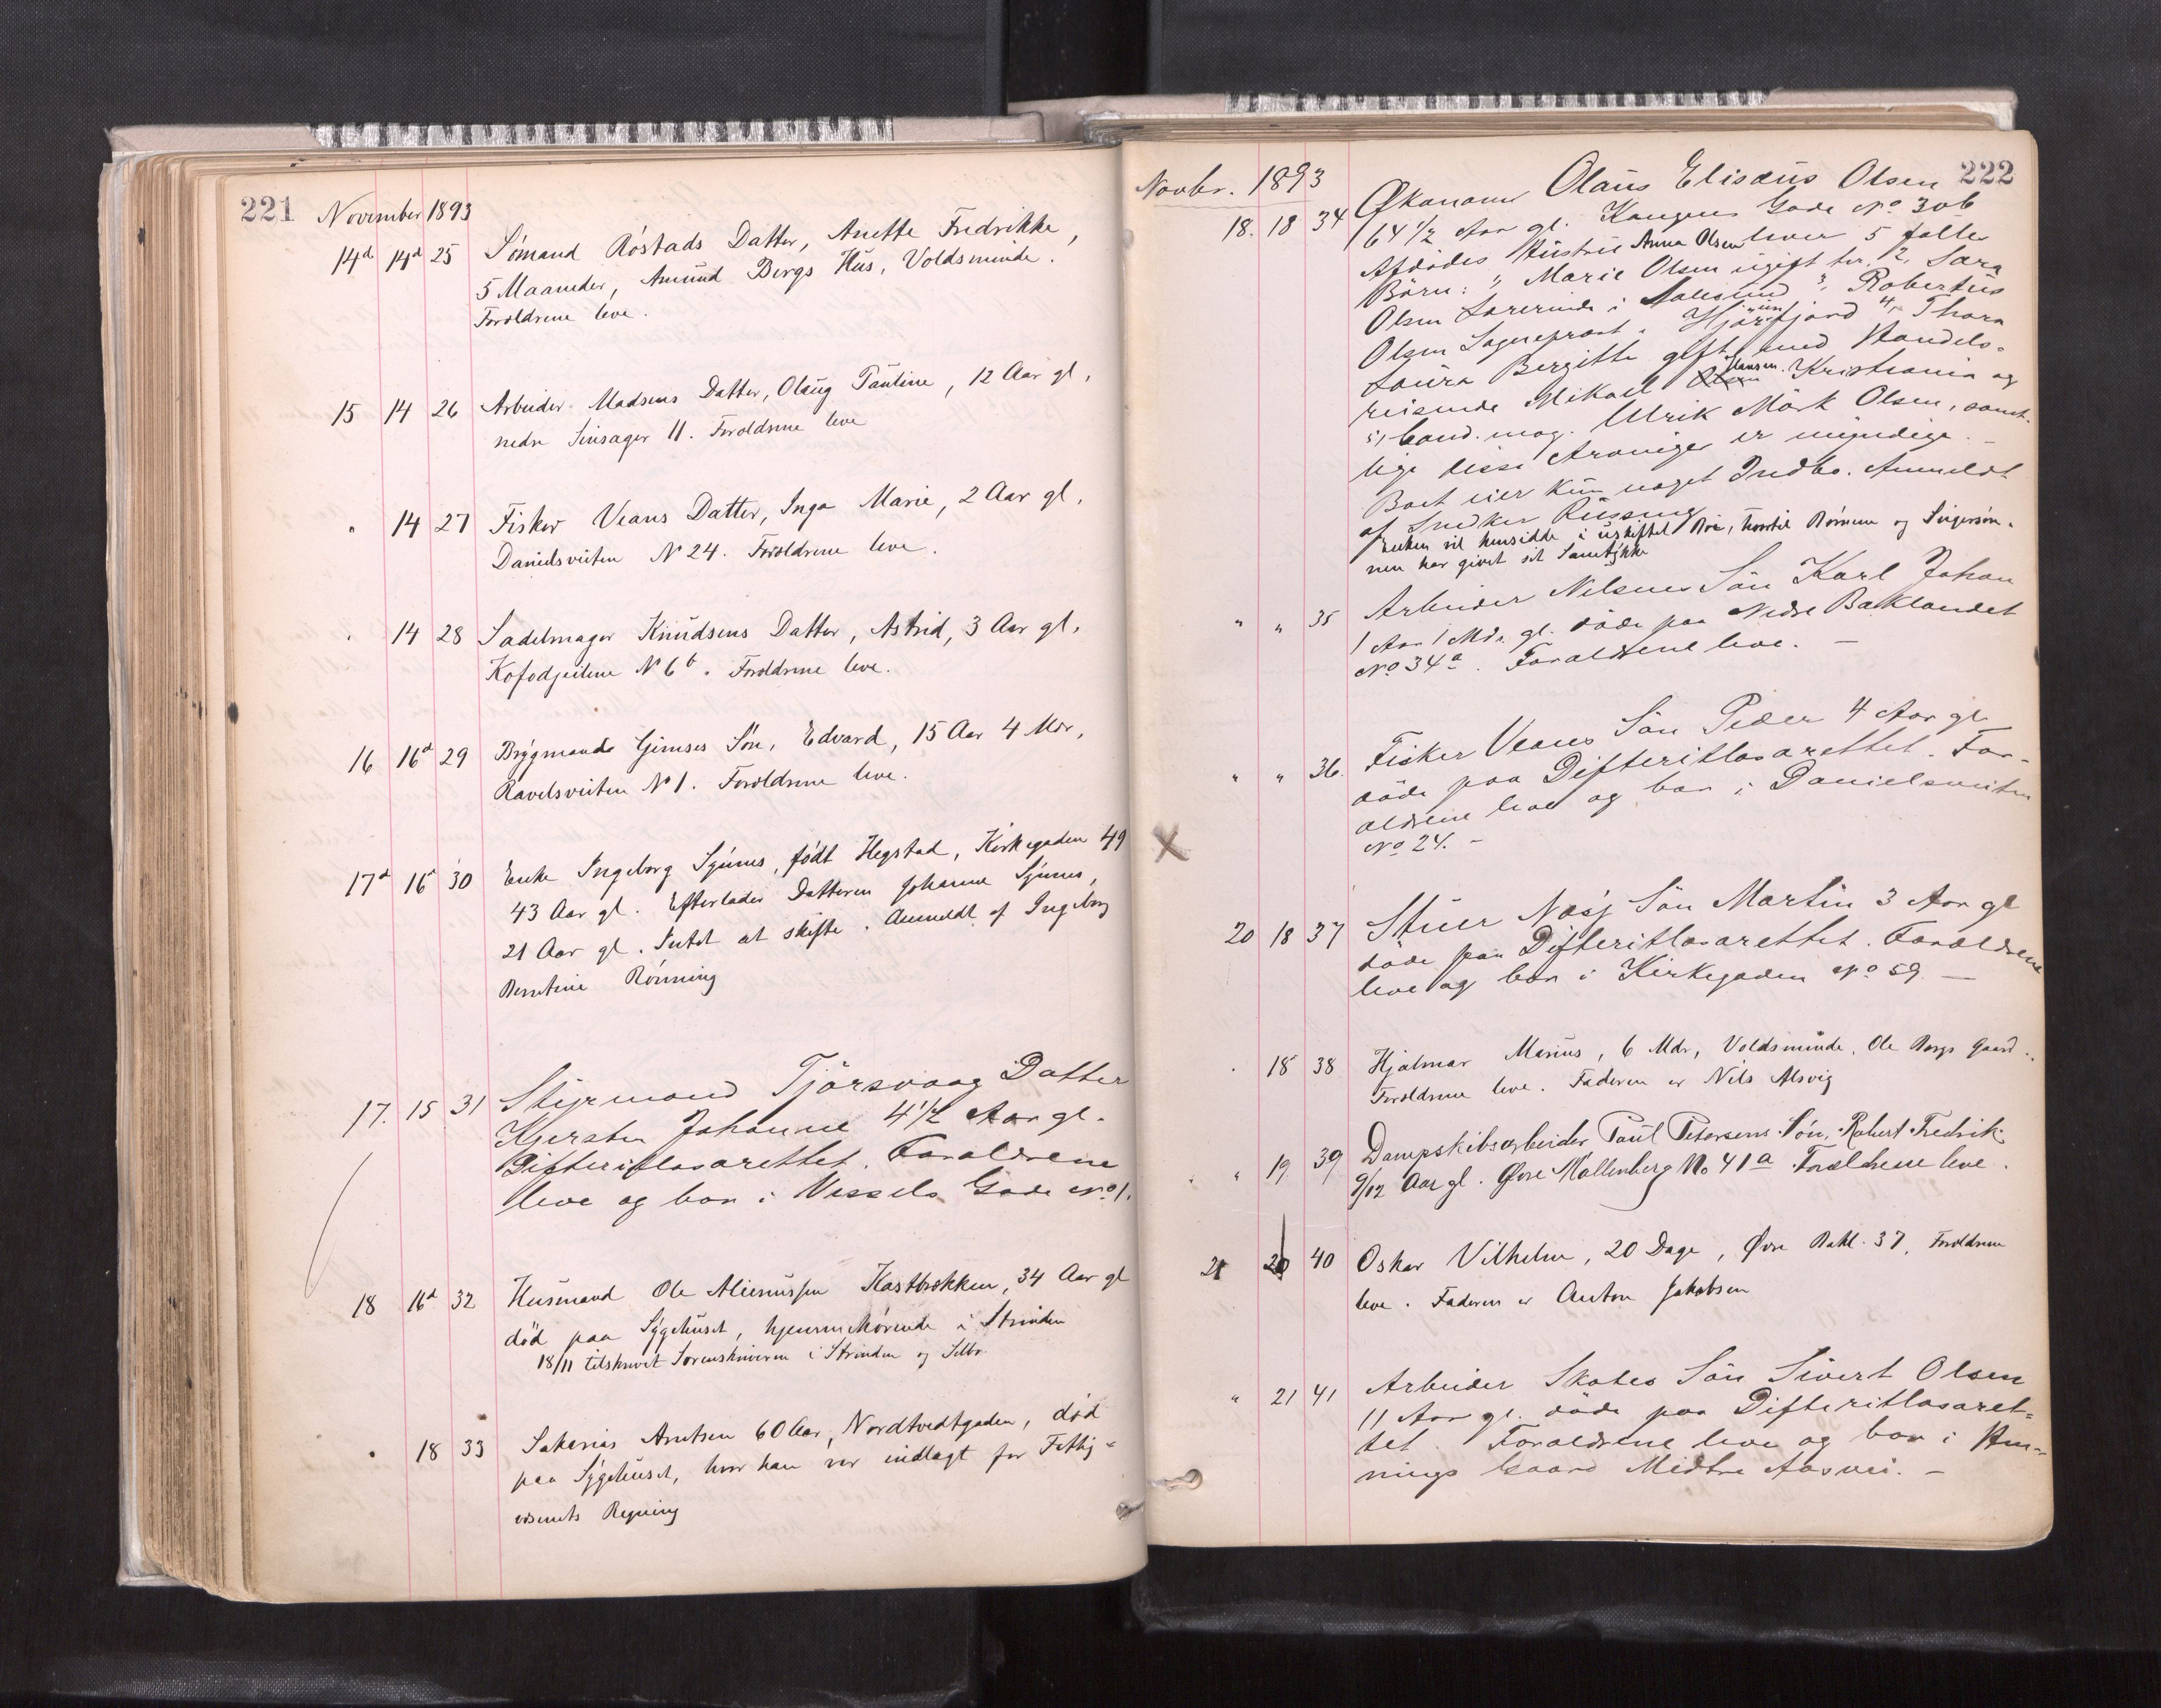 221 November 1893
14d 14d 25 Sømand Røstads Datter, Anette Fredrikke,
5 Maaneder, Amund Bergs Hus, Voldsminde.
Forældrene leve.
15 14 26 Arbeider Madsens Datter, Olaug Pauline, 12 Aar gl,
nedre Sinsager 11. Forældrene leve
" 14 27 Fisker Veans Datter, Inga Marie, 2 Aar gl,
Danielsveiten N 24. Forældrene leve.
" 14 28 Sadelmager Knudsens Datter, Astrid, 3 Aar gl,
Kofodgeilene N 6b. Forældrene leve.
16 16d 29 Brygmand Gimses Søn, Edvard, 15 Aar 4 Mdr,
Ravelsveiten N 1. Forældrene leve.
17d 16d 30 Enke Ingeborg Sjünes, født Hegstad, Kirkegaden 49
43 Aar gl. Efterlader Datteren Johanne Sjünes,
21 Aar gl. Intet at skifte. Anmeldt af Ingeborg
Berntine Rønning
17. 15 31 Styrmand Tjörsvaag Datter
Kjersten Johanne 4 1/2 Aar gl.
Difteritlasarettet. Forældrene
leve og bor i Vessels Gade No 1.
18 16d 32 Husmand Ole Aliemussen Kastbrekken, 34 Aar gl
død paa Sygehuset, hjemmehørende i Strinden
18/11 tilskrevet Sorenskriveren i Strinden og Selbo
" 18 33 Sakarias Arntsen 60 Aar, Nordtvedtgaden, død
paa Sygehuset, hvor han var indlagt for Fattig-
væsenets Regning
222
Novbr. 1893
18. 18 34 Økonom Olaus Elisæus Olsen
64 1/2 Aar gl. Kongens Gade No 30b
Afdødes Hustru Anna Olsen lever 5 fælles
Börn: 1, Marie Olsen ugift her. 2, Sara
Olsen Lærerinde i Aalesund 3, Robertus
Olsen Sogneprest i Hjørundfjord 4, Thora
Laura Birgitte gift med Handels-
reisende Mikael Olsen Hansen Kristiania og
5, Cand. mag. Ulrik Mörk Olsen, samt-
lige disse Arvinger er myndige. -
Boet eier kun noget Indbo. Anmeldt
af Snedker Rüssing
Enken vil hensidde i uskiftet Bo, hvortil Børnene og Svigersøn-
nen har givet sit Samtykke
" " 35 Arbeider Nilsens Sön Karl Johan
1 Aar 1 Mdr. gl. döde paa Nedre Baklandet
No 34a. Forældrene leve. -
" " 36. Fisker Veans Sön Peder 4 Aar gl
döde paa Difteritlasarettet. For-
ældrene leve og bor i Danielsveiten
No 24. -
20 18 37 Stuer Næsj Sön Martin 3 Aar gl
döde paa Difteritlasarettet. Forældrene
leve og bor i Kirkegaden No 59 -
" 18 38 Hjalmar Marius, 6 Mdr, Voldsminde, Ole Bergs Gaard.
Forældrene leve. Faderen er Nils Alsvig
" 19 39 Dampskibsarbeider Paul Petersens Søn, Robert Fredrik
9/12 Aar gl. Øvre Møllenberg No 41a Forældrene leve.
21 20 40 Oskar Vilhelm, 20 Dage, Øvre Bakl. 37, Forældrene
leve. Faderen er Anton Jakobsen
" 21 41 Arbeider Skates Sön Sivert Olsen
11 Aar gl. döde paa Difteritlasaret-
tet. Forældrene leve og bor i Hen-
nings Gaard Midtre Aasvei. -